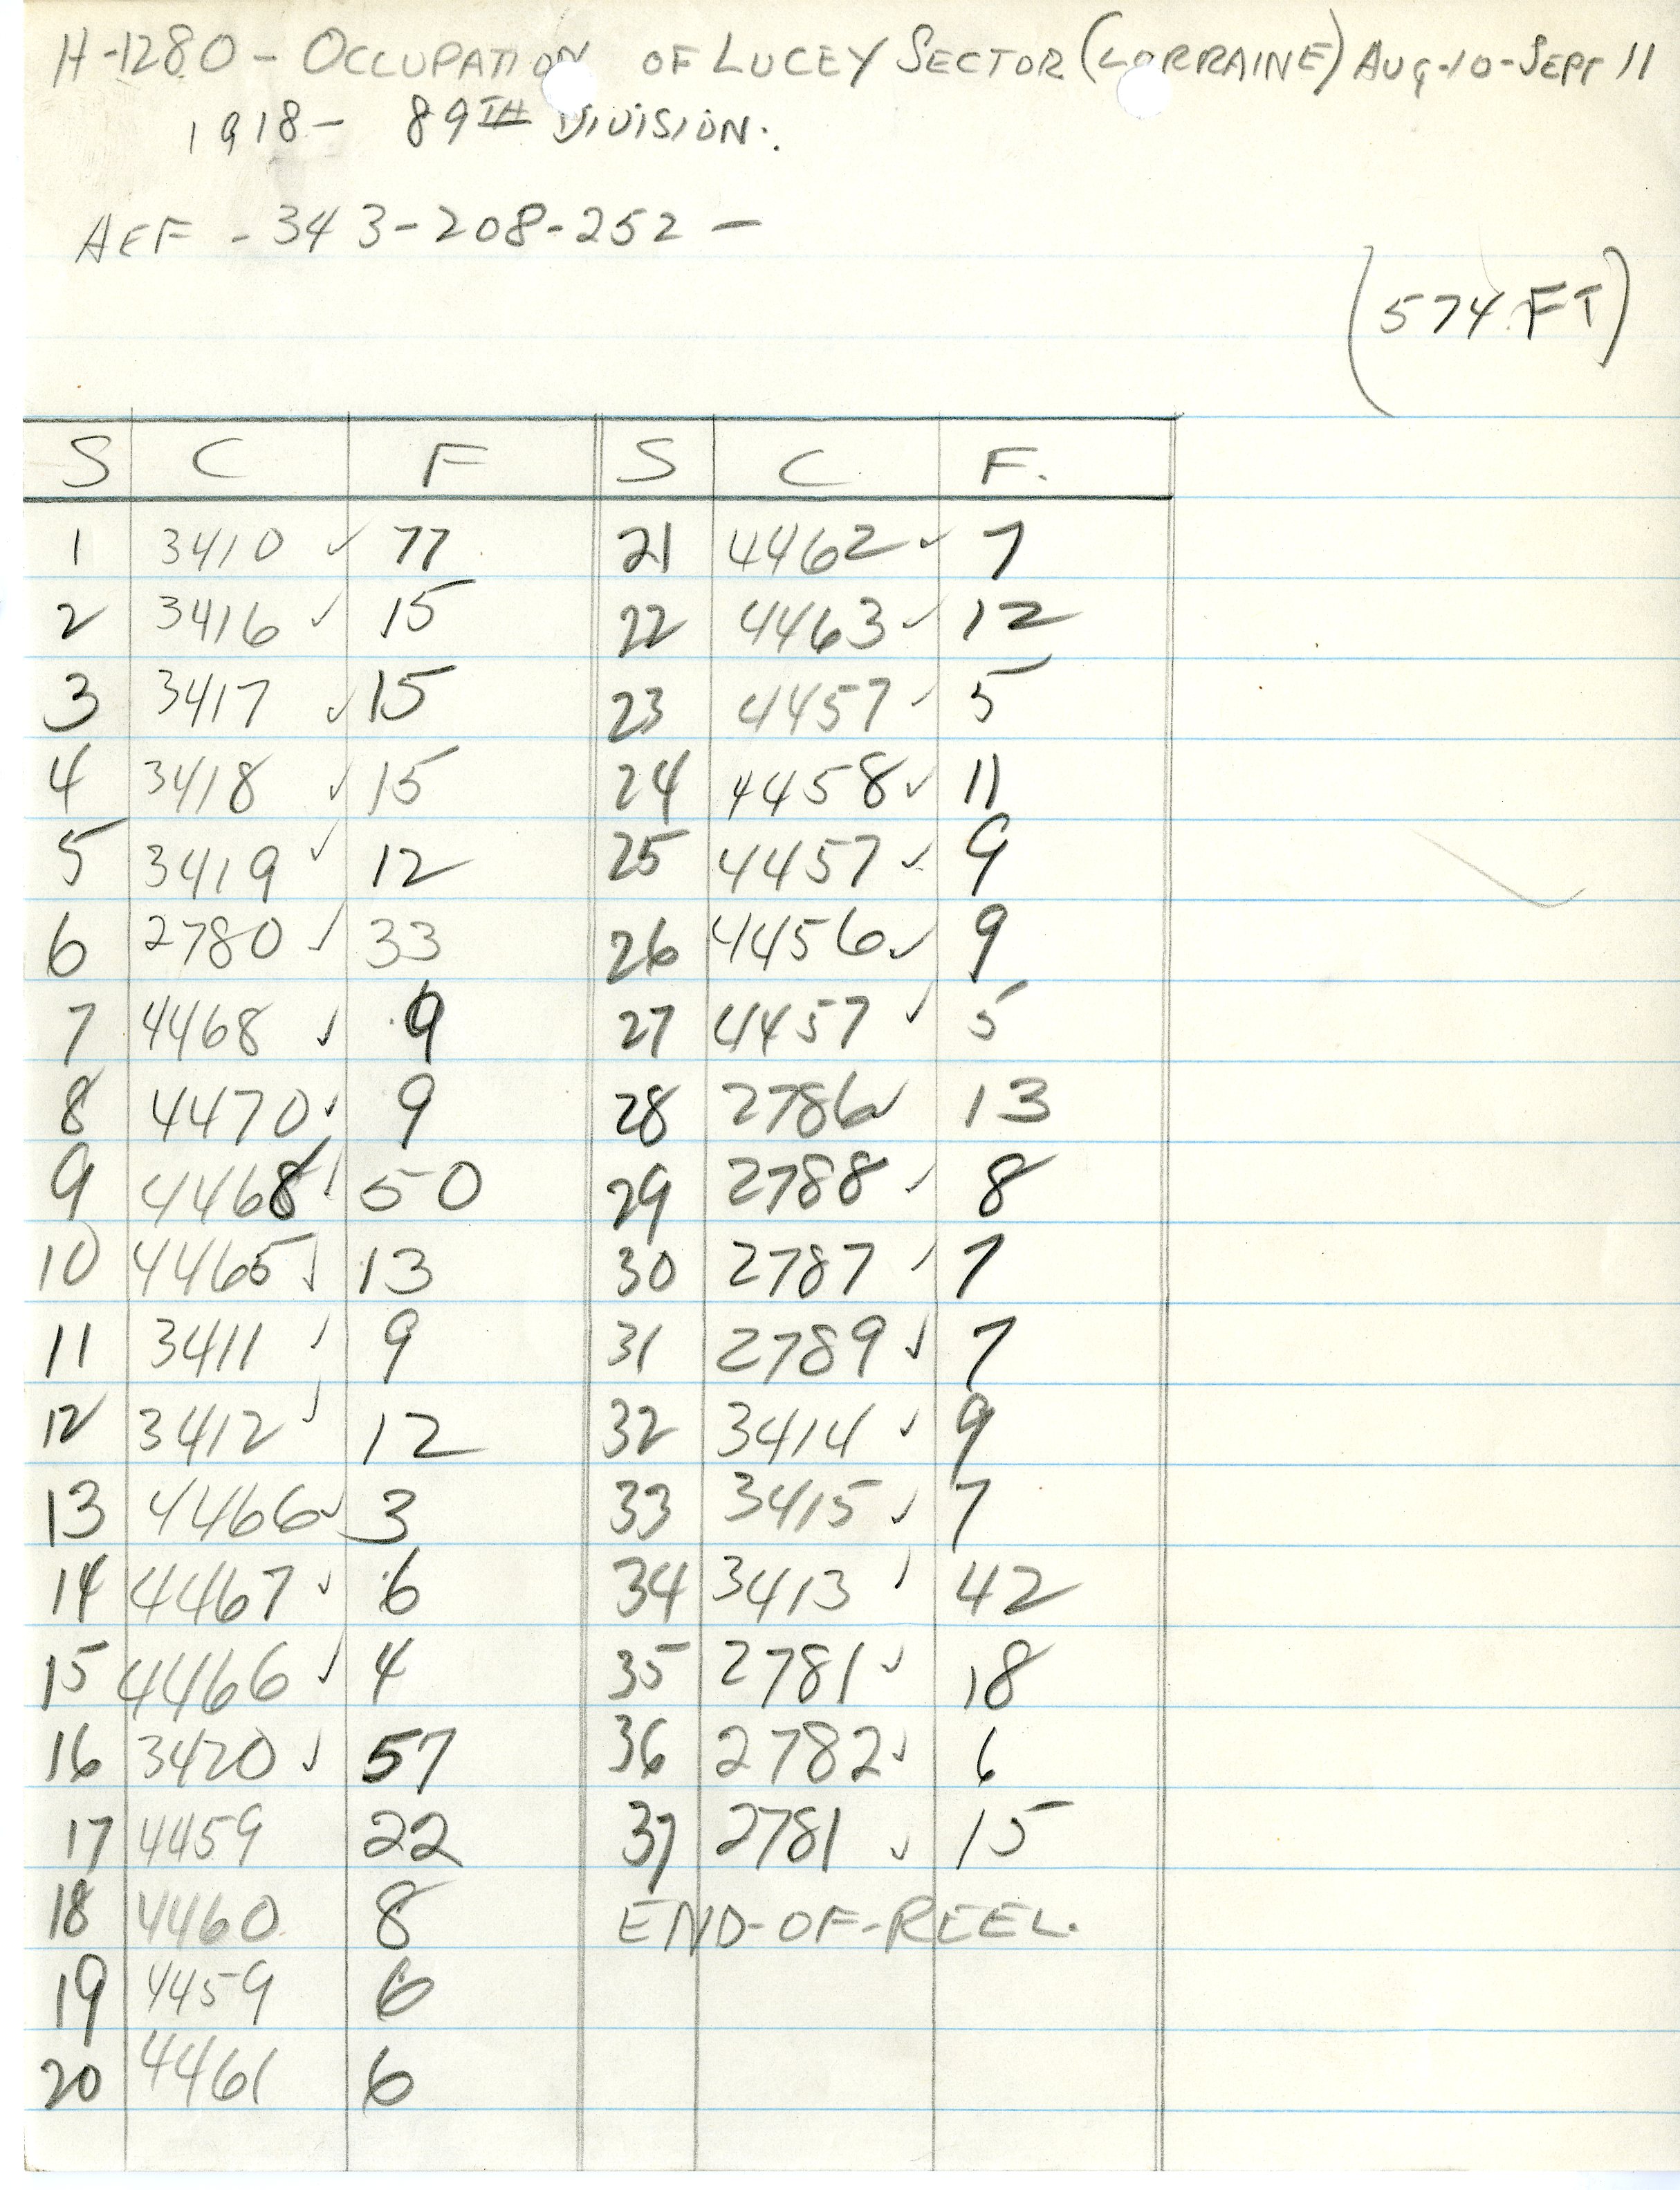 H-1280 - OCCUPATION OF LUCEY SECTOR (LORRAINE) AUG-10-SEPT 11
1918 - 89TH DIVISION.
AEF - 343-208-252 -
(574 FT)
S C F S C F.
1 3410 ✓ 77 21 4462 ✓ 7
2 3416 ✓ 15 22 4463 ✓ 12
3 3417 ✓ 15 23 4457 ✓ 5
4 3418 ✓ 15 24 4458 ✓ 11
5 3419 ✓ 12 25 4457 ✓ 9
6 2780 ✓ 33 26 4456 ✓ 9
7 4468 ✓ 9 27 4457 ✓ 5
8 4470 ✓ 9 28 2786 ✓ 13
9 4468 ✓ 50 29 2788 ✓ 8
10 4465 ✓ 13 30 2787 ✓ 7
11 3411 ✓ 9 31 2789 ✓ 7
12 3412 ✓ 12 32 3414 ✓ 9
13 4466 ✓ 3 33 3415 ✓ 7
14 4467 ✓ 6 34 3413 ✓ 42
15 4466 ✓ 4 35 2781 ✓ 18
16 3420 ✓ 57 36 2782 ✓ 6
17 4459 22 37 2781 ✓ 15
18 4460 8 END-OF-REEL.
19 4459 6
20 4461 6